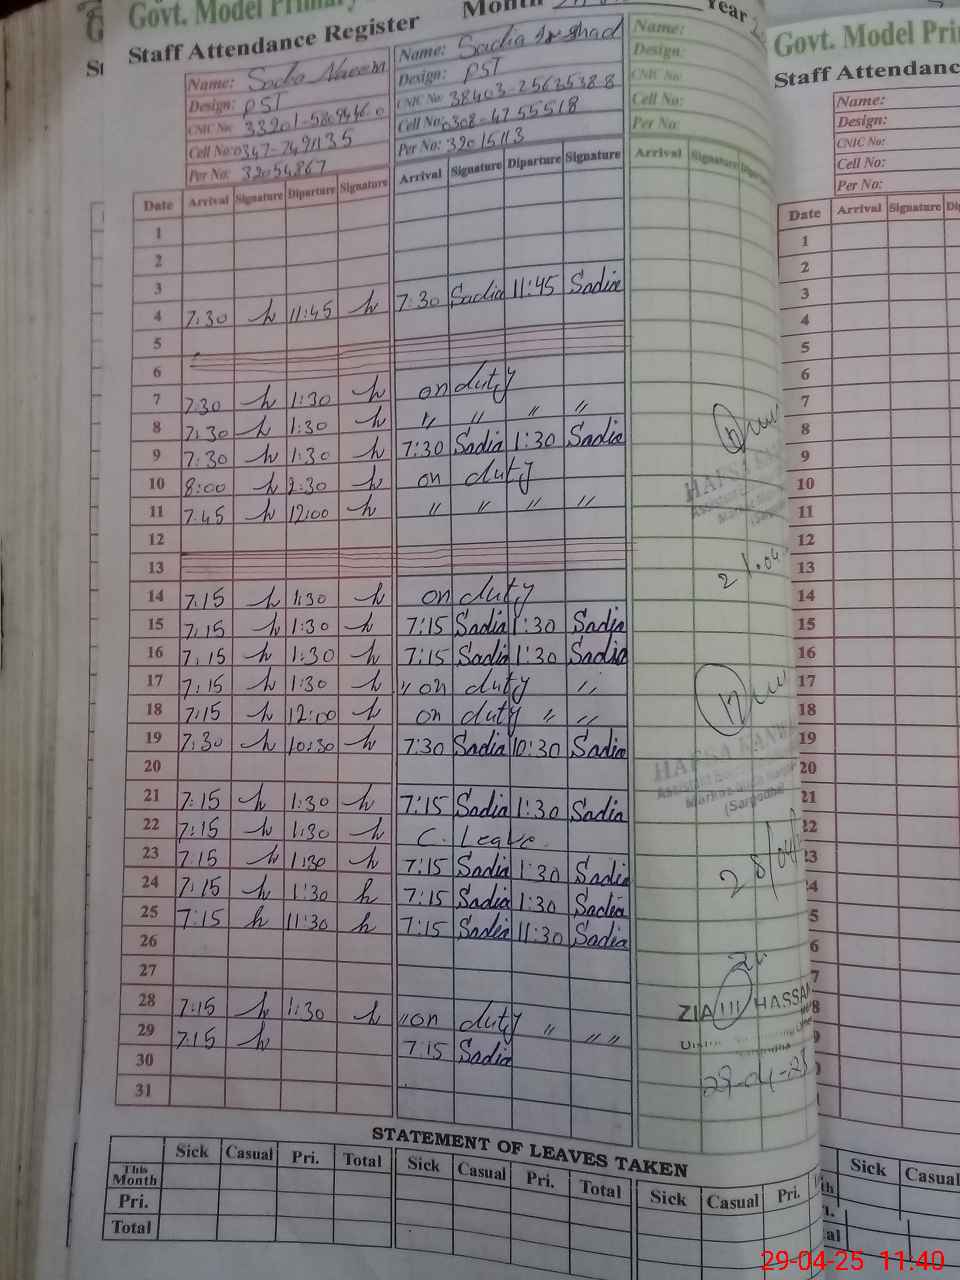 Govt. Model Primary
Staff Attendance Register Month Year
Name: Sadia Naeem Name: Sadia Irshad Name:
Design: PST Design: PST Design:
CNIC No: CNIC No: 38403-2563538-8 CNIC No:
Cell No: 0347-7491135 Cell No: 0308-4755518 Cell No:
Per No: 32054867 Per No: 32015113 Per No:
Date Arrival Signature Diparture Signature Arrival Signature Diparture Signature Arrival Signature
1
2
3
4 7:30 11:45 7:30 Sadia 11:45 Sadia
5
6
7 7:30 1:30 on duty
8 7:30 1:30 〃 〃 〃 〃
9 7:30 1:30 7:30 Sadia 1:30 Sadia
10 8:00 2:30 on duty
11 7:45 12:00 〃 〃 〃 〃
12
13
14 7:15 1:30 on duty
15 7:15 1:30 7:15 Sadia 1:30 Sadia
16 7:15 1:30 7:15 Sadia 1:30 Sadia
17 7:15 1:30 〃 on duty 〃
18 7:15 12:00 on duty 〃 〃
19 7:30 10:30 7:30 Sadia 10:30 Sadia
20
21 7:15 1:30 7:15 Sadia 1:30 Sadia
22 7:15 1:30 C. Leave.
23 7:15 1:30 7:15 Sadia 1:30 Sadia
24 7:15 1:30 7:15 Sadia 1:30 Sadia
25 7:15 11:30 7:15 Sadia 11:30 Sadia
26
27
28 7:15 1:30 〃 on duty 〃 〃 〃
29 7:15 7:15 Sadia
30
31
21.04
(Sargodha)
28/04/
ZIA HASSA
29-04-25
STATEMENT OF LEAVES TAKEN
Sick Casual Pri. Total Sick Casual Pri. Total Sick Casual Pri.
This Month
Pri.
Total
Govt. Model Pri
Staff Attendance
Name:
Design:
CNIC No:
Cell No:
Per No:
Date Arrival Signature
1
2
3
4
5
6
7
8
9
10
11
12
13
14
15
16
17
18
19
20
21
22
23
Sick Casual
29-04-25 11:40